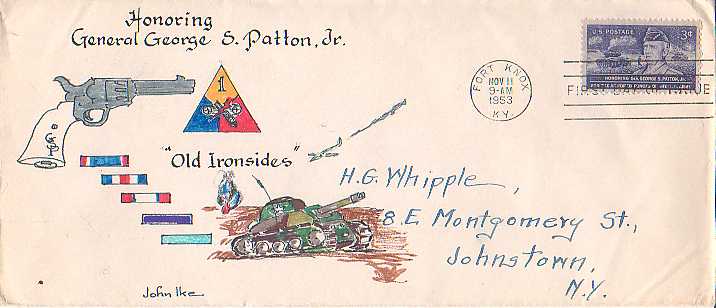 Honoring
General George S. Patton, Jr.
1
"Old Ironsides"
John Ike
FORT KNOX
NOV 11
9-AM
1953
KY.
U.S. POSTAGE 3¢
HONORING GEN. GEORGE S. PATTON, JR.
FIRST DAY OF ISSUE
H.G. Whipple,
8.E Montgomery St.,
Johnstown,
N.Y.